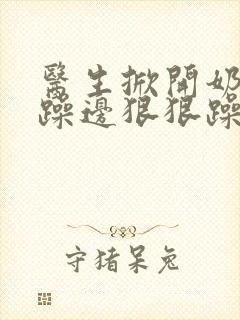 醫生掀開奶
躁邊狠狠躁
守猪呆兔